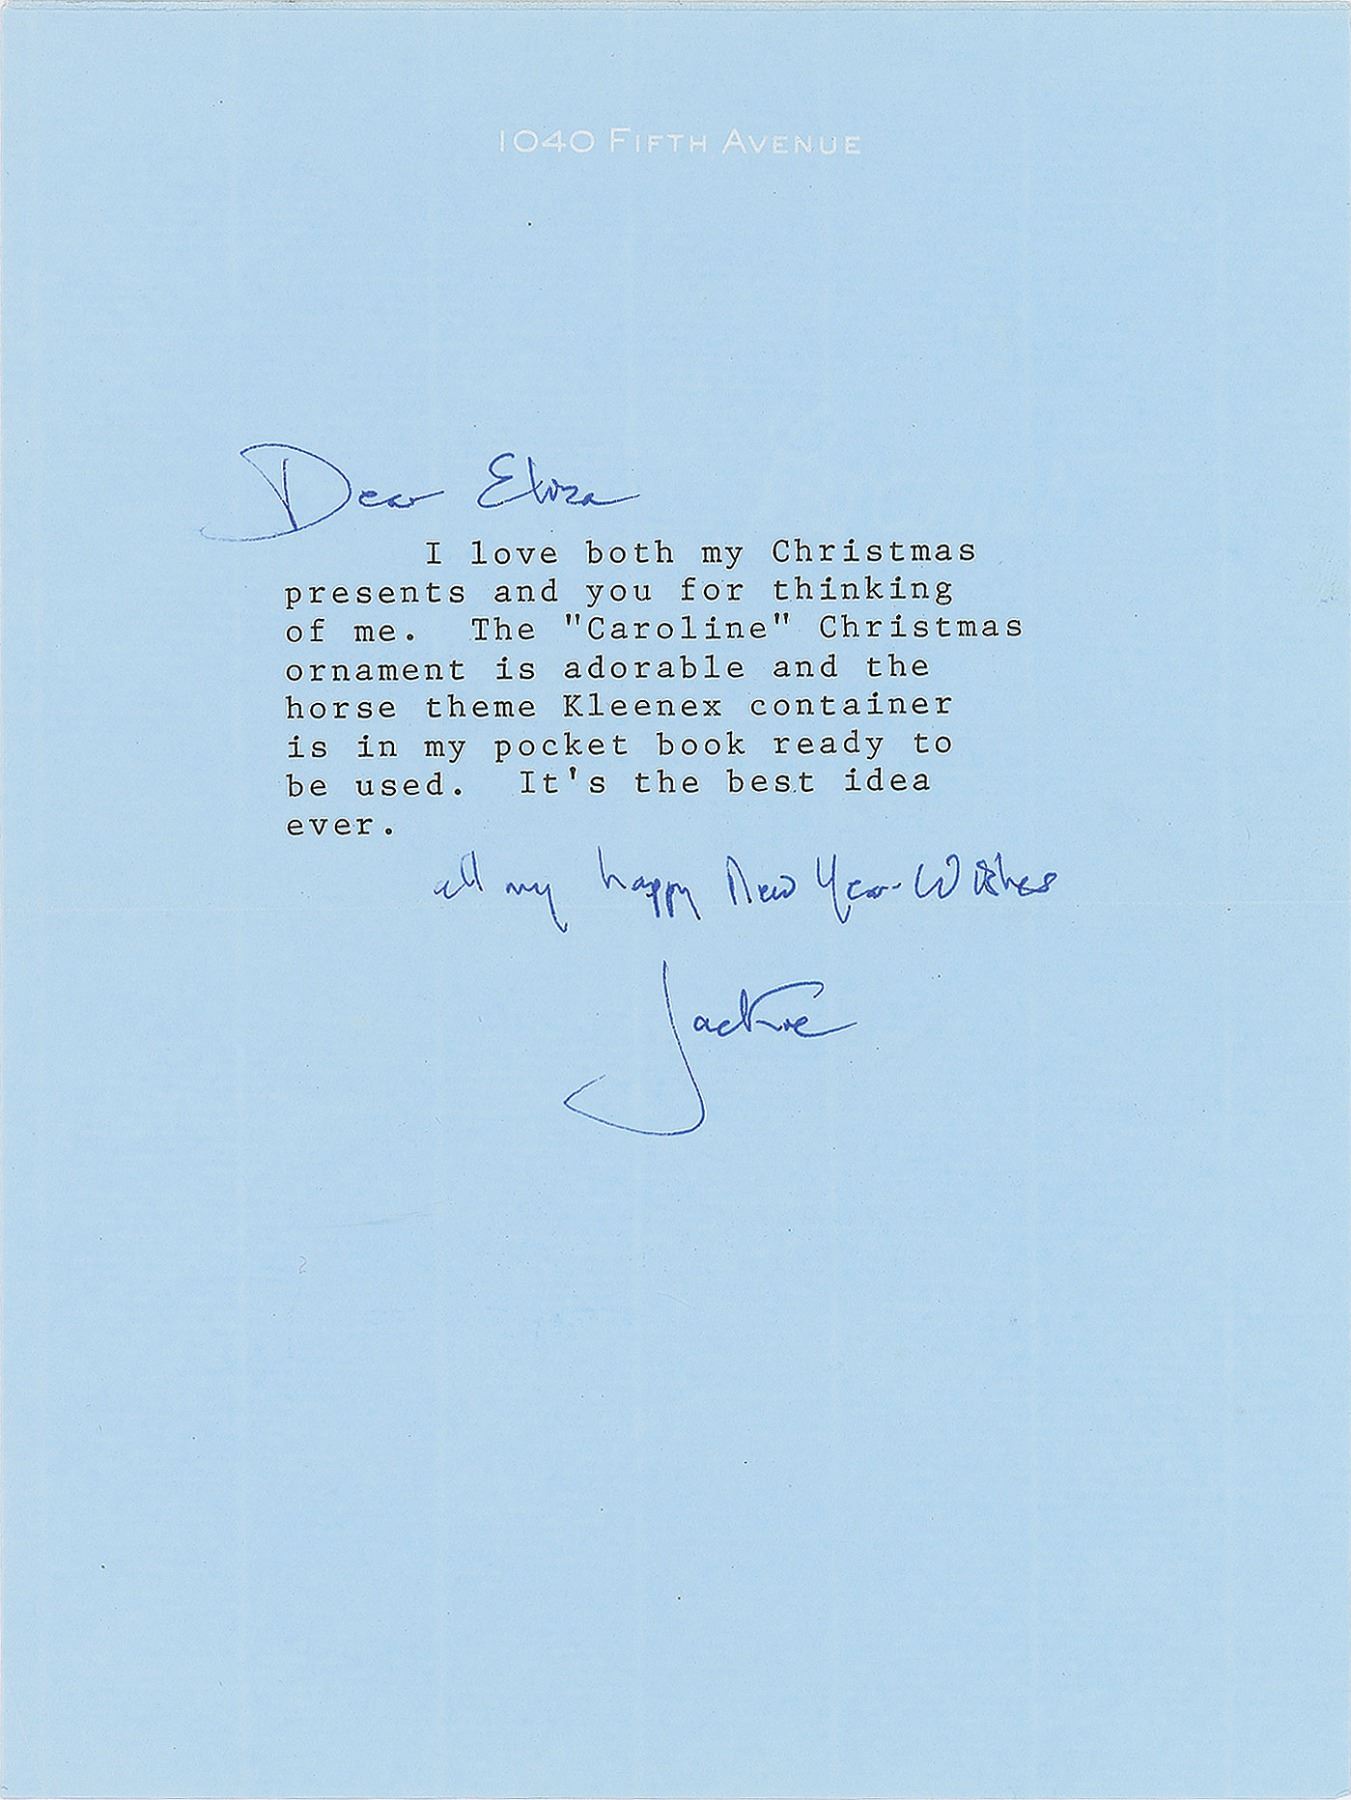 1040 FIFTH AVENUE
Dear Eliza
I love both my Christmas
presents and you for thinking
of me. The "Caroline" Christmas
ornament is adorable and the
horse theme Kleenex container
is in my pocket book ready to
be used. It's the best idea
ever.
all my happy New Year Wishes
Jackie